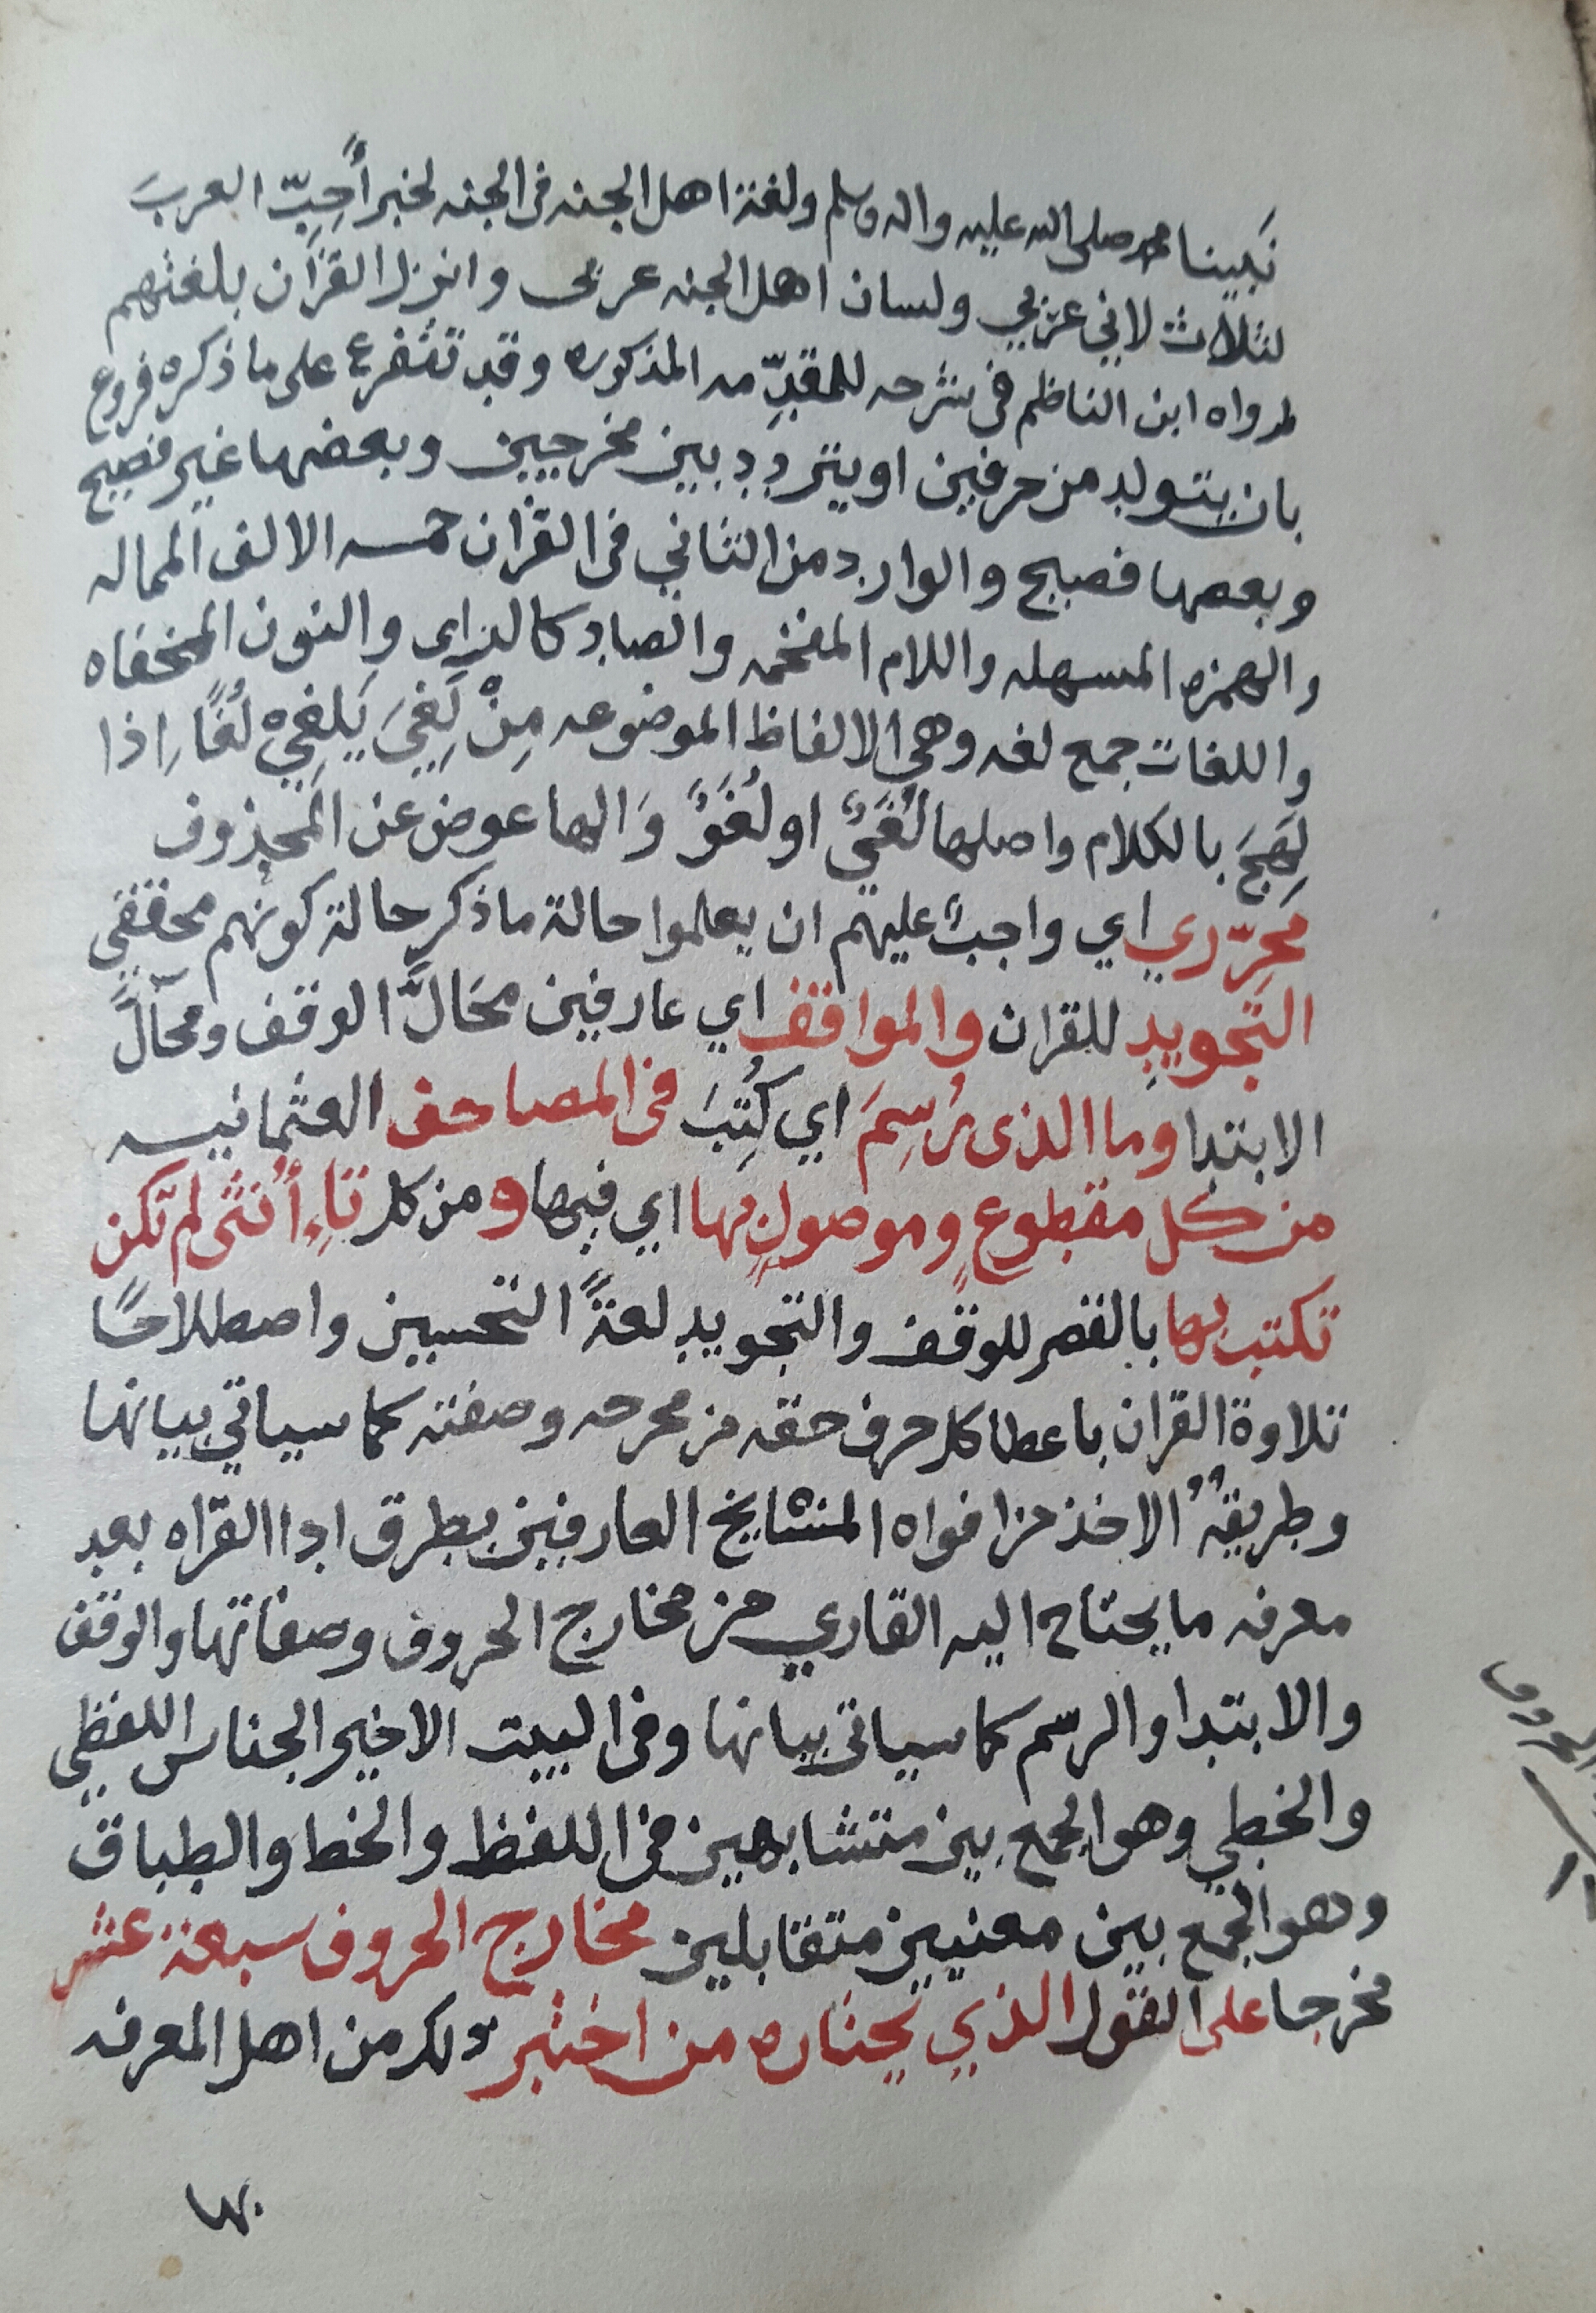 نَبينا محمد صلى الله عليه واله وسلم ولغة اهل الجنه فى الجنه لخبر أُحِبّ العربَ
لثلاث لاني عربي ولسان اهل الجنه عربى وانزل القرآن بلغتهم
رواه ابن الناظم فى شرحه للمقدِّمه المذكوره وقد تتفرع على ما ذكره فروع
بان يتولد من حرفين او يتردد بين مخرجين وبعضها غير فصيح
وبعصها فصيح والوارد من الثاني فى القرآن خمسه الالف الممالة
والهمزه المسهله واللام المفخمه والصاد كالزاى والنون المخفاه
واللغات جمع لغه وهي الالفاظ الموضوعه مِنْ لَغِيَ يَلغِيْ لُغًا إذا
لَهِجَ بالكلام واصلها لُغَيٌ او لُغَوٌ وَالها عوض عن المحذوف
محرّري اي واجبٌ عليهم ان يعلموا حالة ما ذكر حالة كونهم محققي
التجويدِ للقران والمواقف اي عارفين محَالَّ الوقف ومحَالَّ
الابتدا وما الذى رُسِمَ اي كُتِبَ فى المصاحف العثمانيه
من كل مقطوعٍ وموصولٍ بها اي فيها و من كل تاءِ أُنثى لم تكن
تكتب بها بالقصر للوقف والتجويد لغةً التحسين واصطلاحًا
تلاوة القران باعطا كل حرف حقه من محرحه وصفته كما سياتي بيانها
وطريقهُ الاخذ من افواه المشايخ العارفين بطرق ادا القراه بعد
معرفه ما يحتاح اليه القاري من مخارج الحروف وصفاتها والوقف
والابتدا والرسم كما سياتى بيانها وفى البيت الاخير الجناس اللفظي
والخطي وهو الجمع بين متشابهين فى اللفظ والخط والطباق
وهو الجمع بين معنيين متقابلين مخارج الحروف سبعة عشر
مخرجا على القول الذي يختاره من اختبر ذلك من اهل المعرفه
بها
الحروف